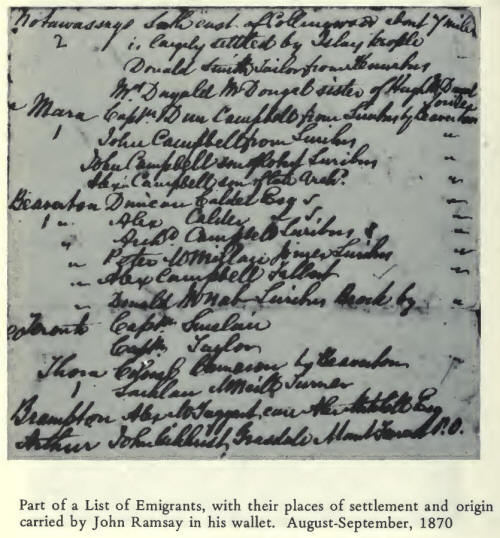 Notawassaga South east of Collingwood about 7 miles
2 is largely settled by Islay people
Donald Smith Tailor from
Mrs Dugald McDougal sister of Hugh
Mara Captn Dun Campbell from by Beaverton
1 John Campbell from "
John Campbell son of John "
Alex Campbell son of "
Beaverton Duncan Calder Esq "
1 " Alex Calder "
" Archd Campbell "
" Peter McMillan Joiner "
" Alex Campbell "
" Donald McNab Brock by "
Toronto Captn Sinclair
Captn Taylor
Thora Colonel Cameron by Beaverton
1 Lachlan McNeill Turner
Brampton Alex McTaggart, care Alex Esq
Arthur John Mount Forest P.O.
Part of a List of Emigrants, with their places of settlement and origin
carried by John Ramsay in his wallet. August-September, 1870